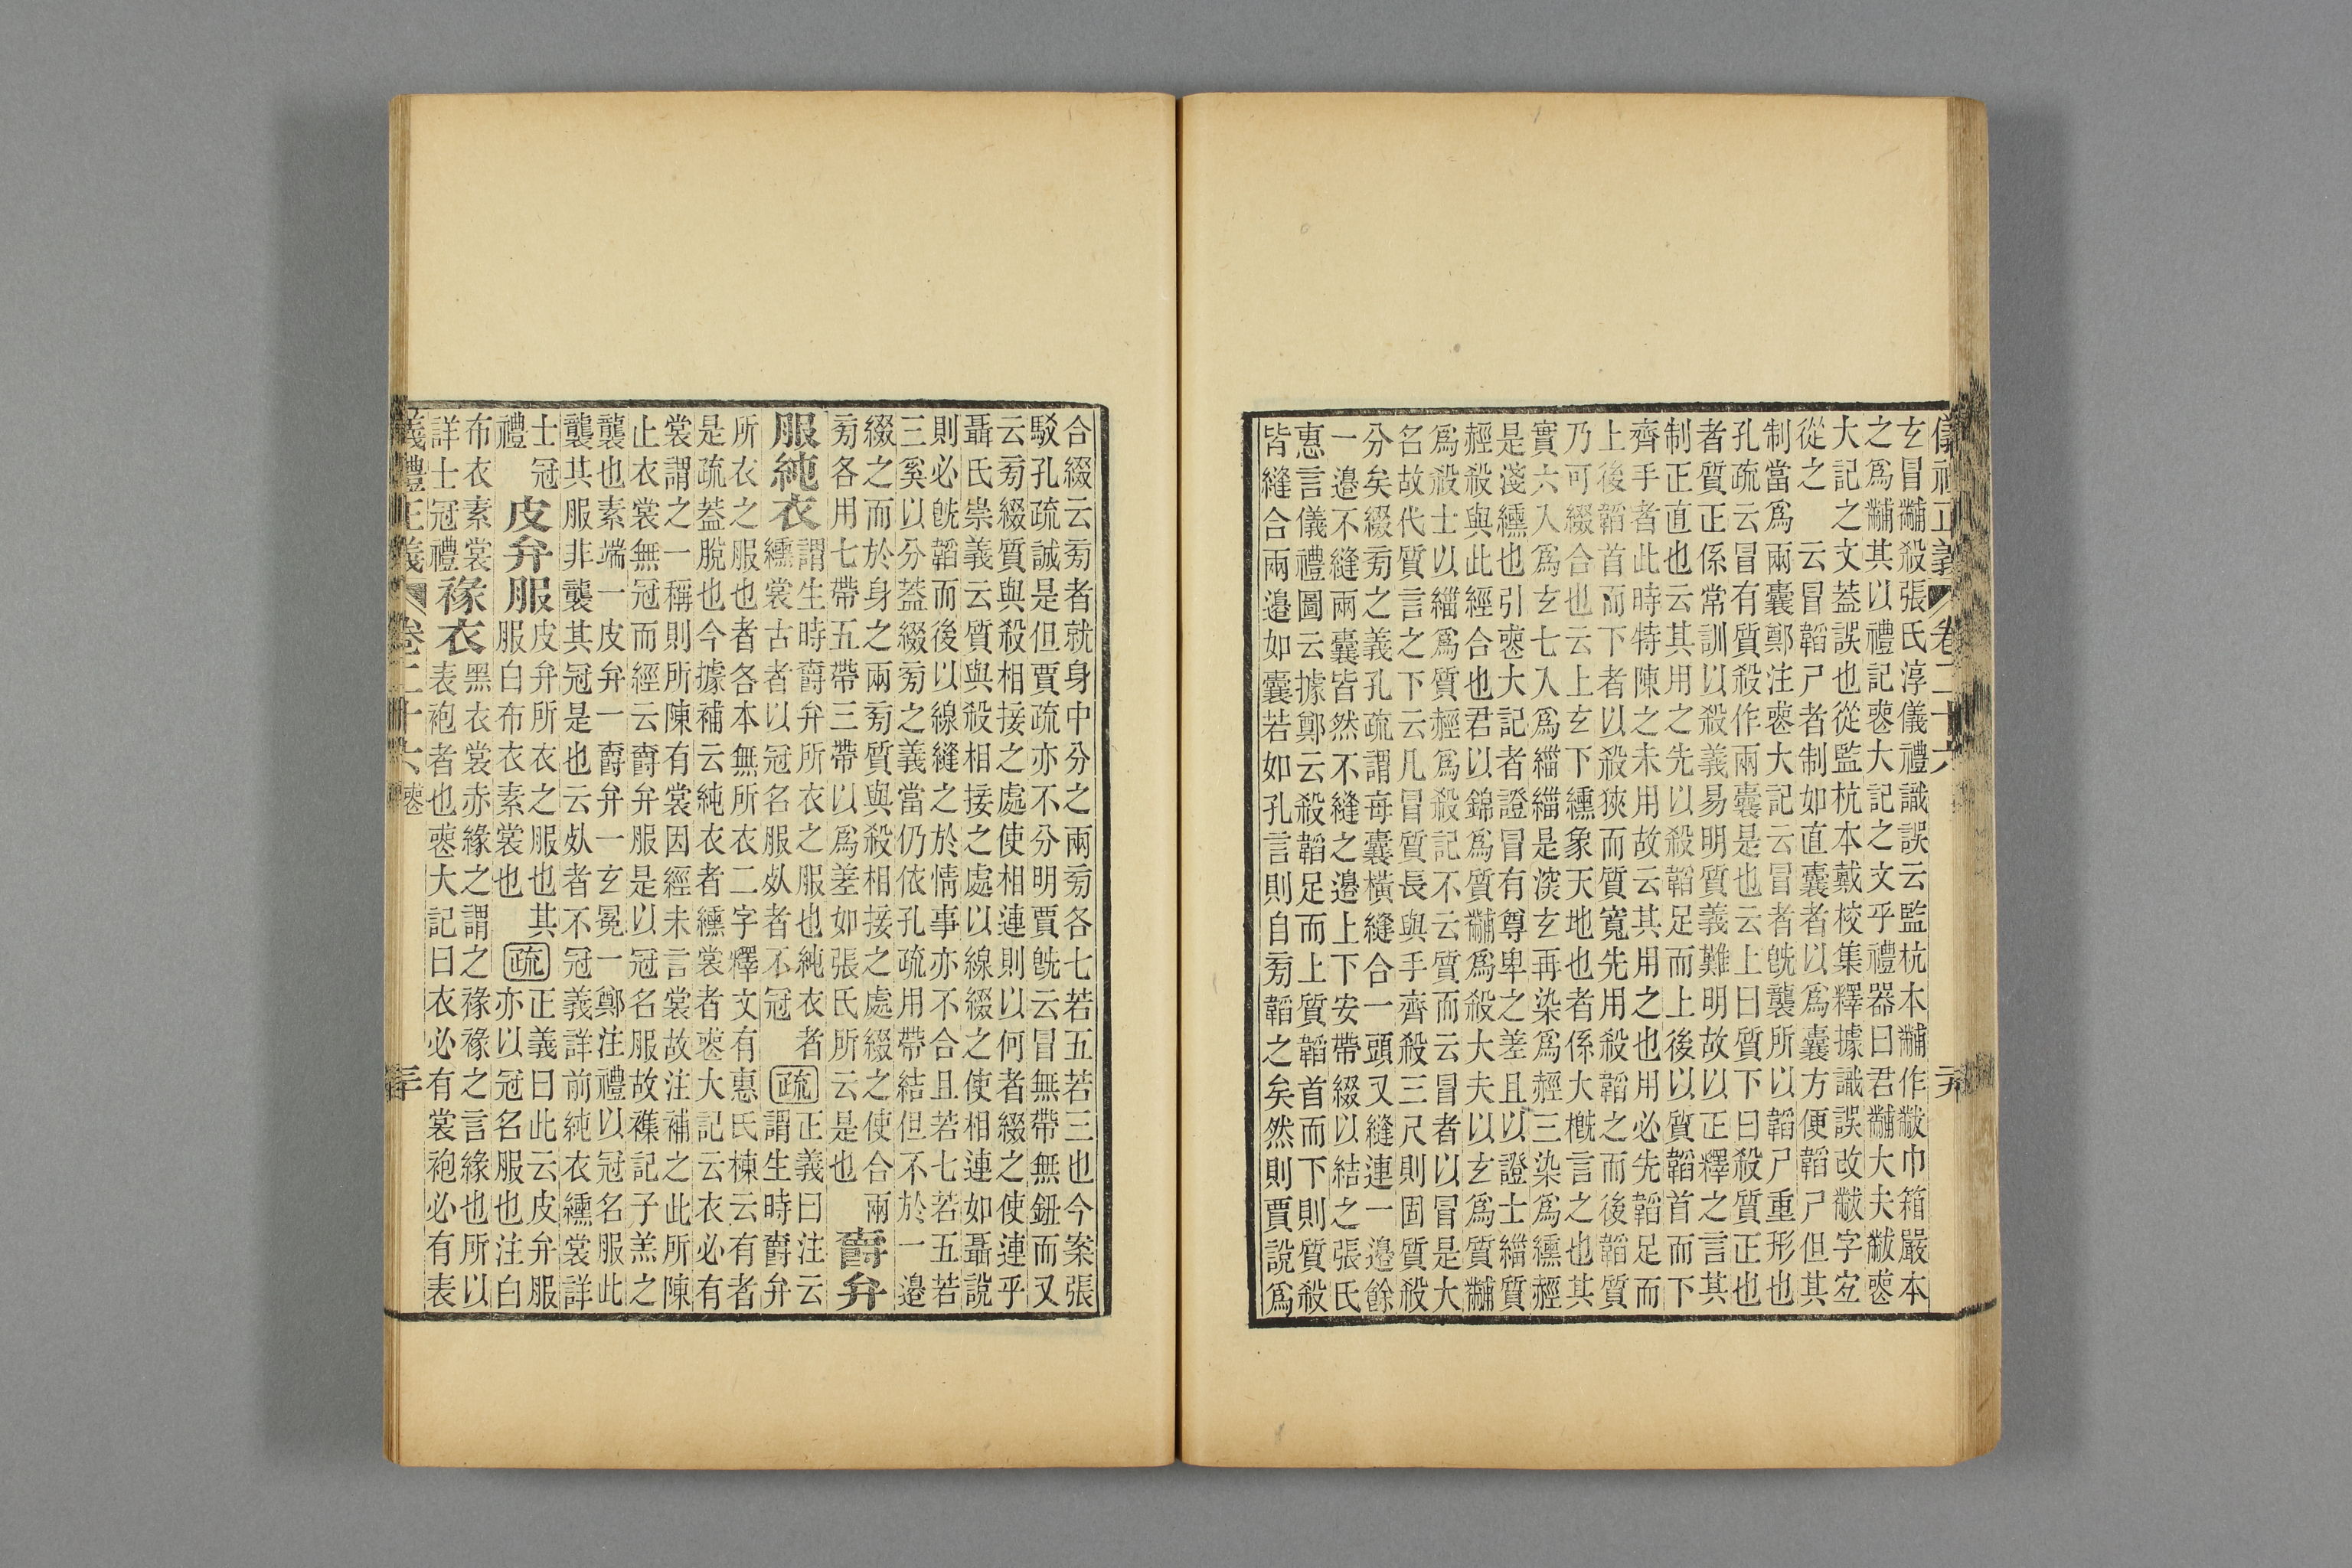 儀禮正義 卷二十六 元
玄冒黼殺張氏淳儀禮識誤云監杭本黼作黻巾箱嚴本
之爲黼其以禮記喪大記之文乎禮器曰君黼大夫黻喪
大記之文蓋誤也從監杭本戴校集釋據識誤改黻字宜
從之 云冒韜尸者制如直囊者以爲囊方便韜尸但其
制當爲兩囊鄭注喪大記云冒者旣襲所以韜尸重形也
孔疏云冒有質殺作兩囊是也云上曰質下曰殺質正也
者質正係常訓以殺義易明質義難明故以正釋之言其
制正直也云其用之先以殺韜足而上後以質韜首而下
齊手者此時特陳之未用故云其用之也用必先韜足而
上後韜首而下者以殺狹而質寬先用殺韜之而後韜質
乃可綴合也云上玄下纁象天地也者係大概言之也其
實六入爲玄七入爲緇緇是深玄再染爲赬三染爲纁赬
是淺纁也引喪大記者證冒有尊卑之差且以證士緇質
赬殺與此經合也君以錦爲質黼爲殺大夫以玄爲質黼
爲殺士以緇爲質赬爲殺記不云質而云冒者以冒是大
名故代質言之下云凡冒質長與手齊殺三尺則固質殺
分矣綴旁之義孔疏謂每囊橫縫合一頭又縫連一邊餘
一邊不縫兩囊皆然不縫之邊上下安帶綴以結之張氏
惠言儀禮圖云據鄭云殺韜足而上質韜首而下則質殺
皆縫合兩邊如囊若如孔言則自旁韜之矣然則賈說爲
合綴云旁者就身中分之兩旁各七若五若三也今案張
駁孔疏誠是但賈疏亦不分明賈旣云冒無帶無鈕而又
云旁綴質與殺相接之處使相連則以何者綴之使連乎
聶氏崇義云質與殺相接之處以線綴之使相連如聶說
則必旣韜而後以線縫之於情事亦不合且若七若五若
三奚以分蓋綴旁之義當仍依孔疏用帶結但不於一邊
綴之而於身之兩旁質與殺相接之處綴之使合兩
旁各用七帶五帶三帶以爲差如張氏所云是也 爵弁
服純衣 謂生時爵弁所衣之服也純衣者
纁裳古者以冠名服死者不冠 疏 正義曰注云
謂生時爵弁
所衣之服也者各本無所衣二字釋文有惠氏棟云有者
是疏蓋脫也今據補云純衣者纁裳者喪大記云衣必有
裳謂之一稱則所陳有裳因經未言裳故注補之此所陳
止衣裳無冠而經云爵弁服是以冠名服故襍記子羔之
襲也素端一皮弁一爵弁一玄冕一鄭注禮以冠名服此
襲其服非襲其冠是也云死者不冠義詳前純衣纁裳詳
士冠禮 皮弁服 皮弁所衣之服也其
服白布衣素裳也 疏 正義曰此云皮弁服
亦以冠名服也注白
布衣素裳
詳士冠禮 褖衣 黑衣裳赤緣之謂之褖褖之言緣也所以
表袍者也喪大記曰衣必有裳袍必有表
義禮正義 卷二十六 喪 三十